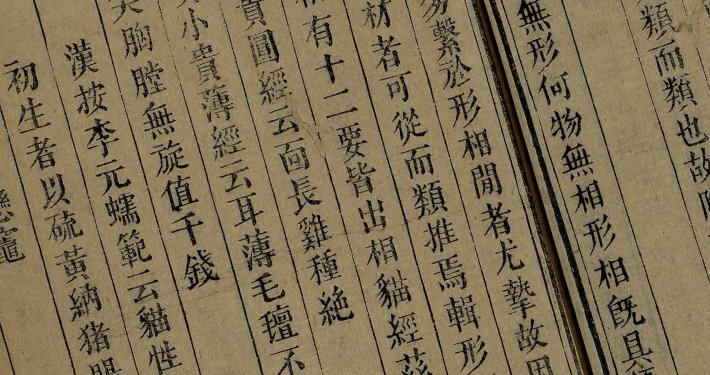 類而類也故
無形何物無相形相旣具
繫於形相閒者尤摯故因
材者可從而類推焉輯形
有十二要皆出相貓經茲
貴圓經云面長雞種絶
小貴薄經云耳薄毛氊不
胸膛無旋值千錢
漢按李元蠕範云貓性
初生者以硫黃納猪